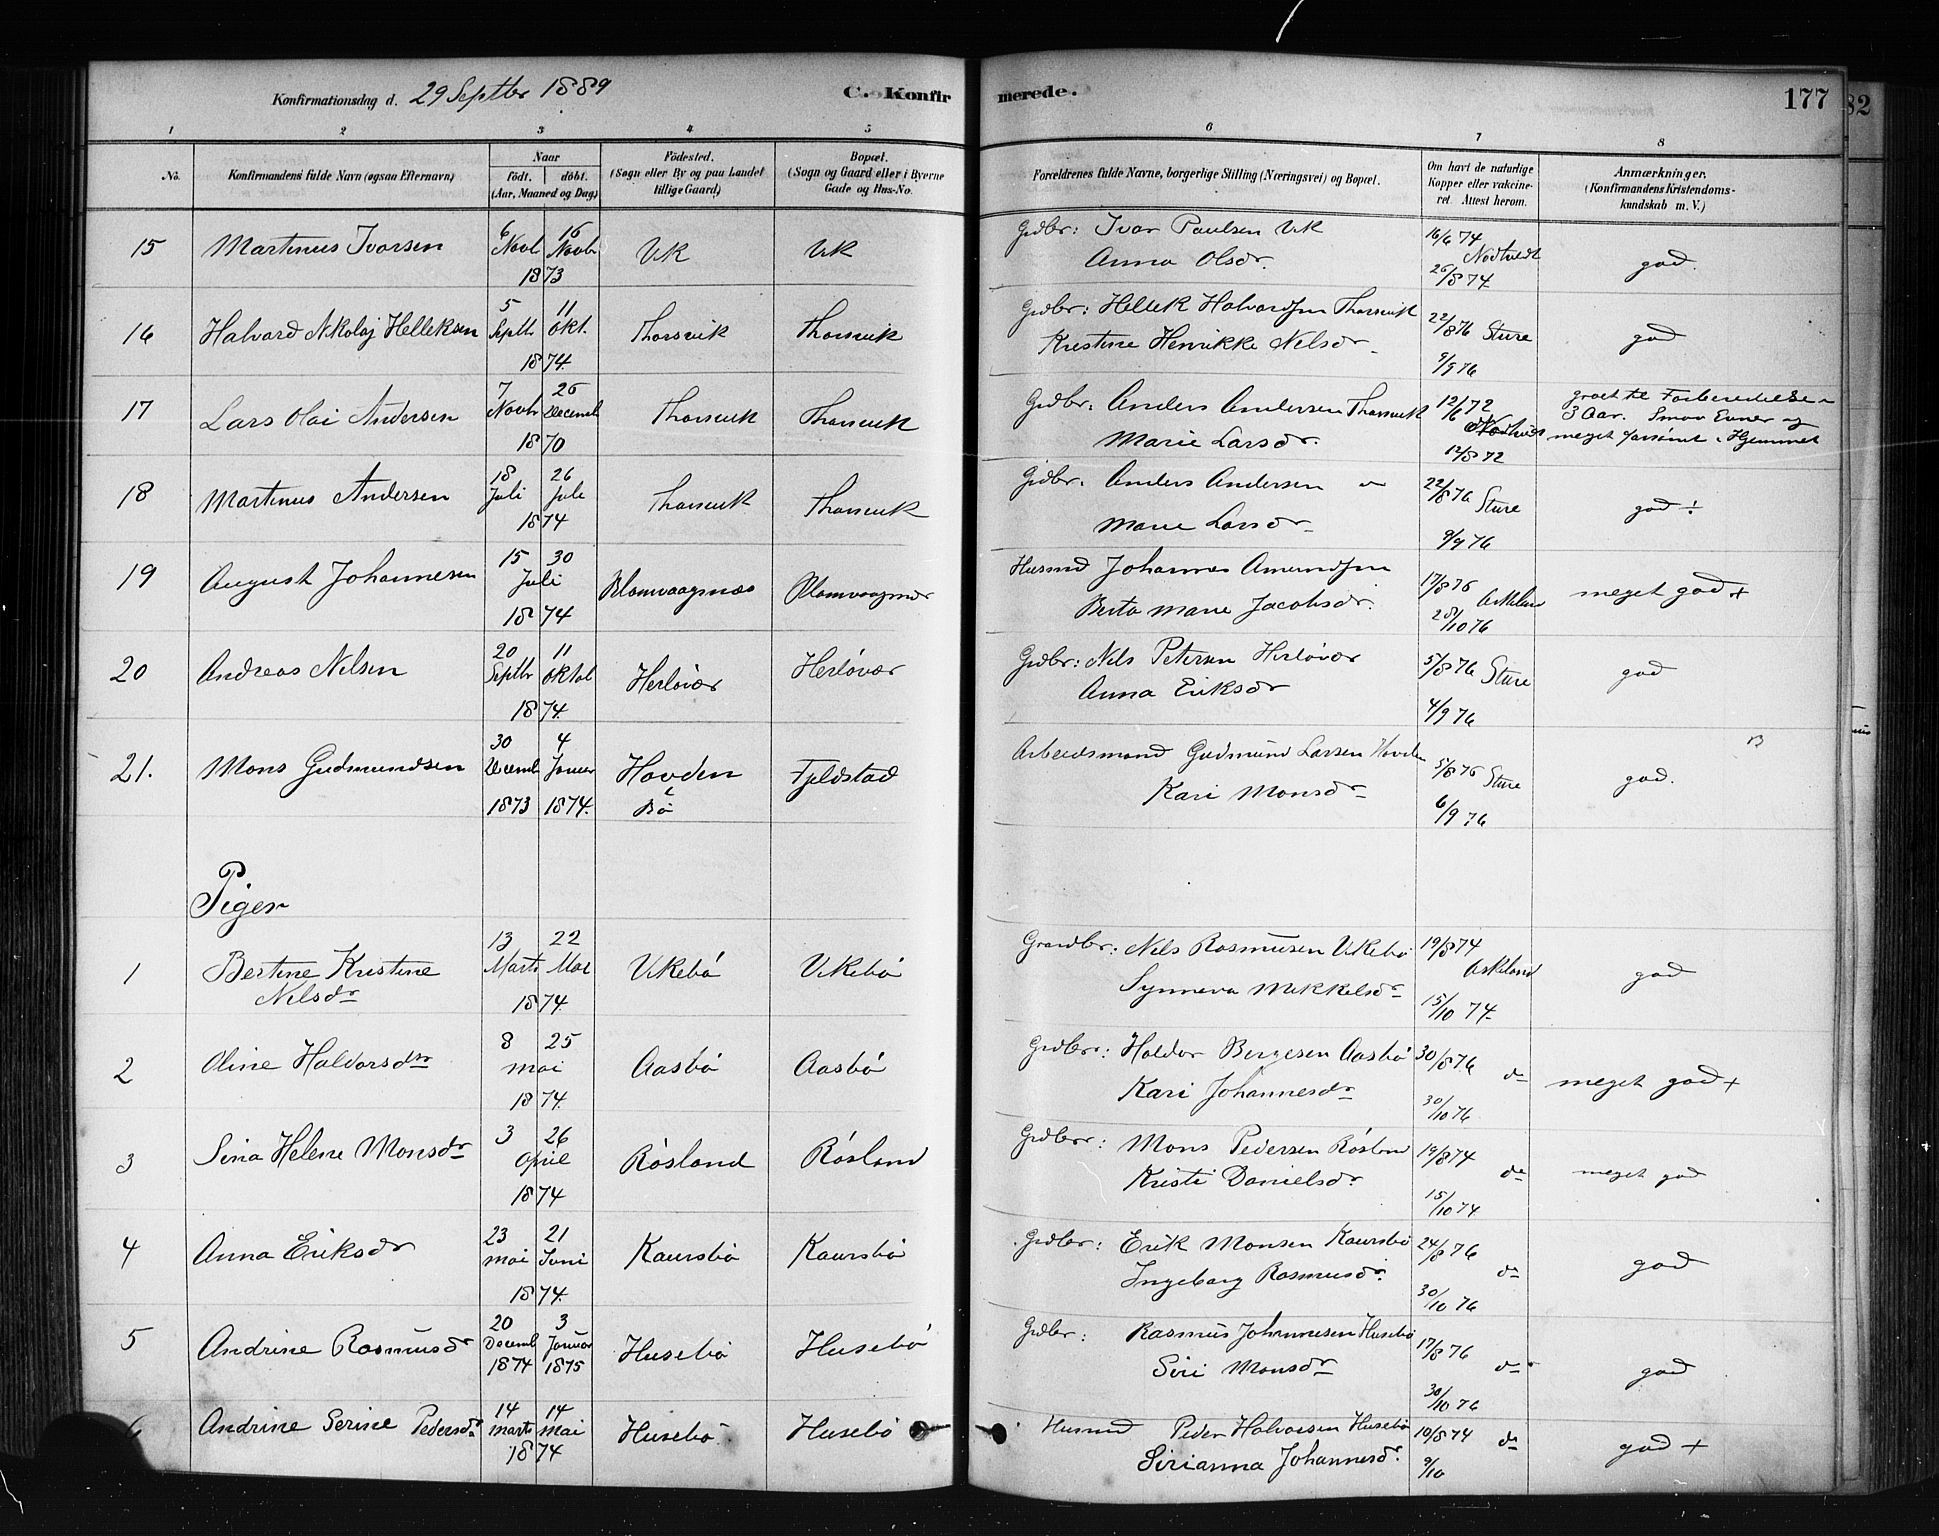 Konfirmationsdag d. 29 Septbr 1889 C. Konfirmerede. 177
82
1 2 3 4 5 6 7 8
No. Konfirmandens fulde Navn (ogsaa Efternavn) Naar Födt. döbt. (Aar, Maaned og Dag) Födested. (Sogn eller By og paa Landet tillige Gaard) Bopæl. (Sogn og Gaard eller i Byerne Gade og Hus-No. Forældrenes fulde Navne, borgerlige Stilling (Næringsvei) og Bopæl. Om havt de naturlige Kopper eller vakcineret. Attest herom. Anmærkninger. (Konfirmandens Kristendomskundskab m. V.)
15 Martinus Ivarsen 6 Novb 16 Novbr 1873 Vik Vik Grdbr: Ivar Paulsen Vik
Anna Olsdr. 16/6 74 Nodtvedt 26/8 74 god.
16 Halvard Nikolaj Helleksen 5 Septbr 11 Okt. 1874 Thorsvik Thorsvik Grdbr: Hellek Halvardsen Thorsvik
Kristine Henrikke Nelsdr 22/8 76 Sture 9/9 76 god
17 Lars Olai Andersen 7 Novbr 26 Decemb 1870 Thorsvik Thorsvik Grdbr. Anders Andersen Thorsvik
Marie Larsdr. 12/6 72 Nodtvedt 12/8 72 gaaet til Forberedelse i
3 Aar. Smaa Evner og
meget forsömt i Hjemmet
18 Martinus Andersen 18 Juli 26 Juli 1874 Thorsvik Thorsvik Grdbr. Anders Andersen
Marie Larsdr 22/8 76 Sture 9/9 76 god ÷
19 August Johannesen 15 30 Juli 1874 Blomvaagnæs Blomvaagnæs Husmd Johannes Amundsen
Berta Marie Jacobsdr. 17/8 76 Askeland 28/10 76 meget god +
20 Andreas Nilsen 20 Septbr 11 Oktob 1874. Herlövær Herlövær Grdbr: Nils Petersen Herlövær
Anna Eriksdr 5/8 76 Sture 4/9 76 god
21. Mons Gudmundsen 30 Decemb 1873 4 Januar 1874. Hovden i Bö Fjeldstad Arbeidsmand Gudmund Larsen Hovden
Kari Monsdr 5/8 76 Sture 6/9 76 god.
Piger
1 Bertine Kristine
Nilsdr 13 Marts 22 Mai 1874. Vikebö Vikebö Gaardbr: Nils Rasmusen Vikebö
Synneva Mikkelsdr 19/8 74 Askeland 15/10 74. god
2 Oline Haldorsdtr 8 25 mai 1874. Aasbö Aasbö Grdbr: Haldor Bergesen Aasbö
Kari Johannesdr 30/8 76 do 30/10 76 meget god +
3 Sina Helene Monsdr 3 26 April 1874 Rösland Rösland Grdbr: Mons Pedersen Rösland
Kristi Danielsdr. 19/8 74 do 15/10 74 meget god
4 Anna Eriksdr 23 mai 21 Juni 1874. Kaursbö Kaursbö Grdbr: Erik Monsen Kaursbö
Ingeborg Rasmusdr. 24/8 76 do 30/10 76 god
5 Andrine Rasmusdr 20 Decemb 1874 3 Januar 1875 Husebö Husebö Grdbr: Rasmus Johannesen Husebö
Siri Monsdr 17/8 76 do 30/10 76 god
6 Andrine Serine Pedersdr 14 marts 14 Mai 1874 Husebö Husebö Husmd Peder Halvorsen Husebö
Sirianna Johannesdr. 10/8 74 do 9/10 god +